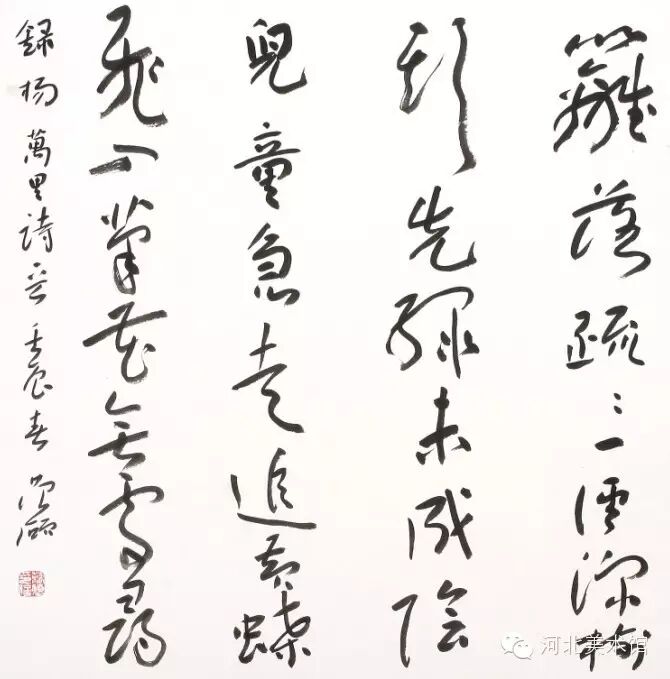 籬落疏〻一徑深樹
頭先綠未成陰
兒童急走追黃蝶
飛入菜花無處尋
錄楊萬里詩 壬辰春
河北美术馆